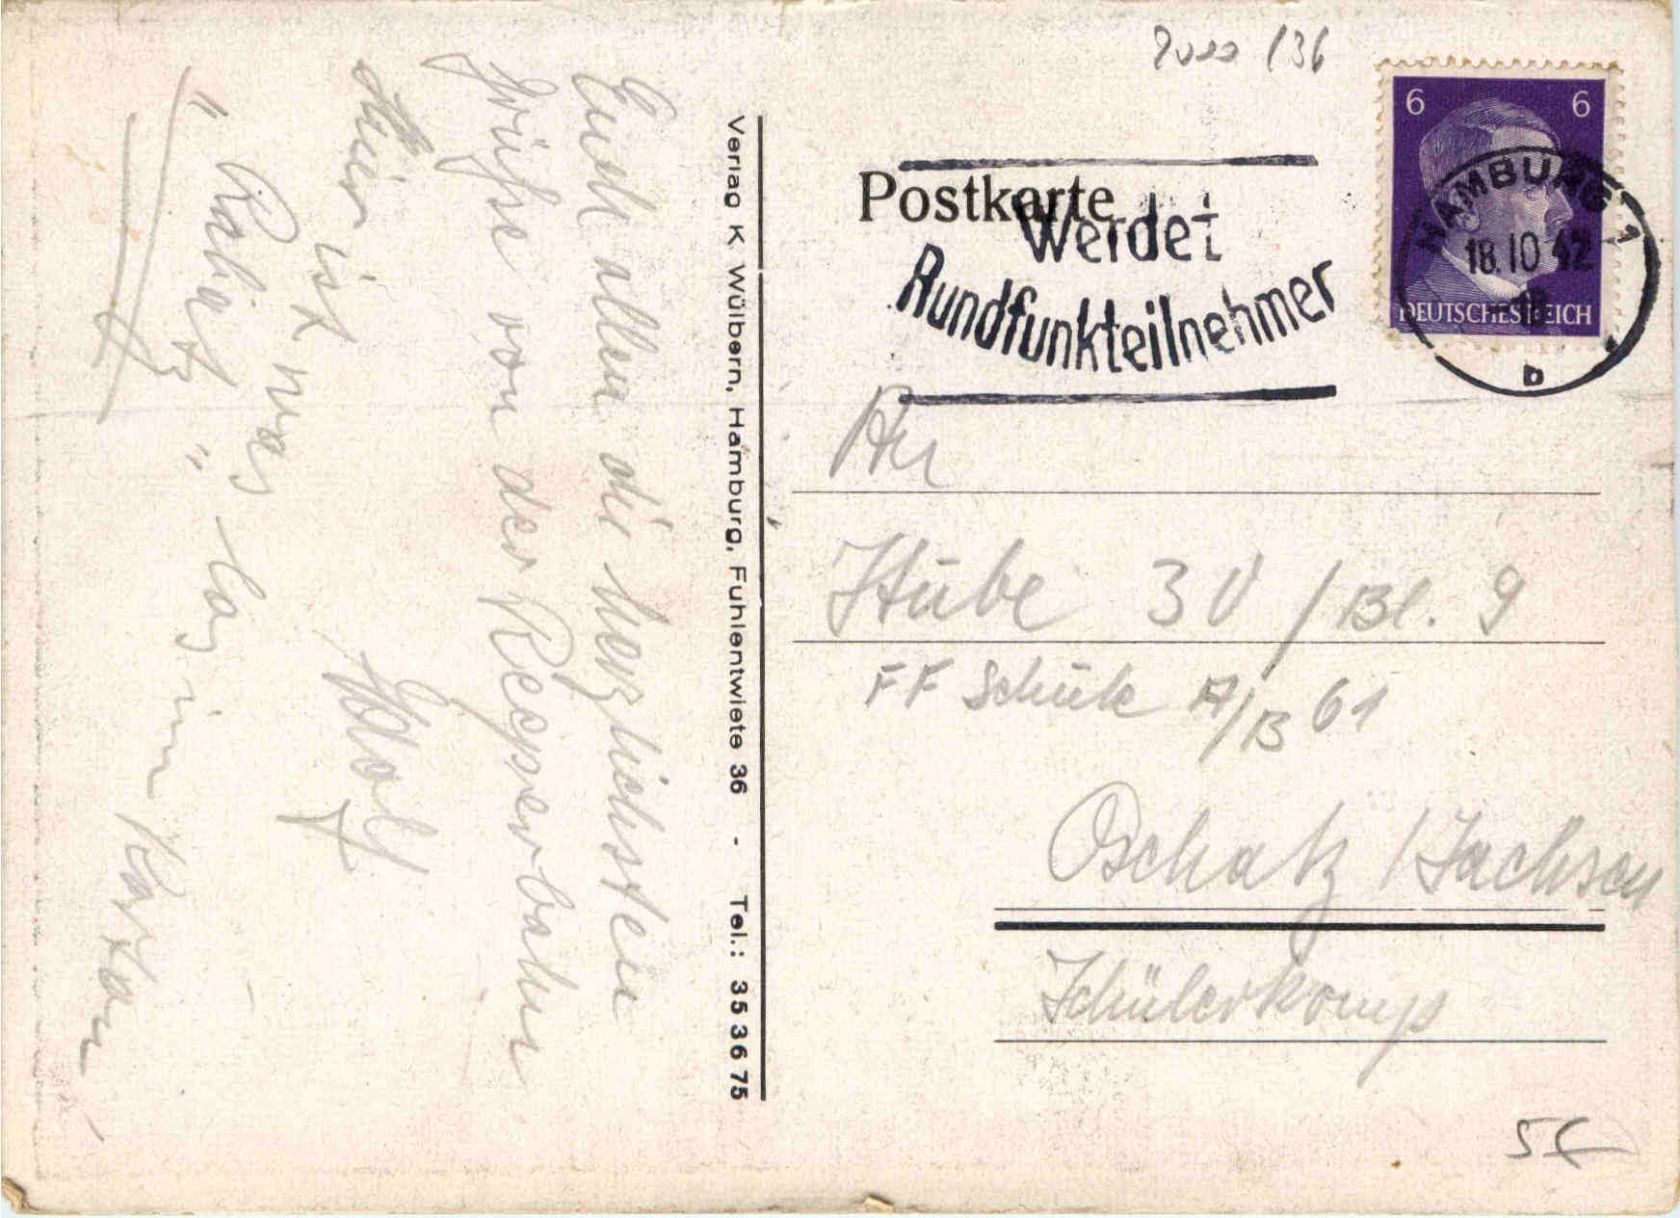 Euch allen die herzlichsten
Grüße von der Reeperbahn
Hier ist was los im Karton
Wolf
Verlag K Wülbern, Hamburg, Fuhlentwiete 36 - Tel.: 35 36 75
/36
6 6
DEUTSCHES REICH
HAMBURG 1
18.10 42
18
b
Postkarte
Werdet
Rundfunkteilnehmer
An
Stube 30 / Bl. 9
FF Schule A/B 61
Oschatz / Sachsen
Schülerkomp
5€